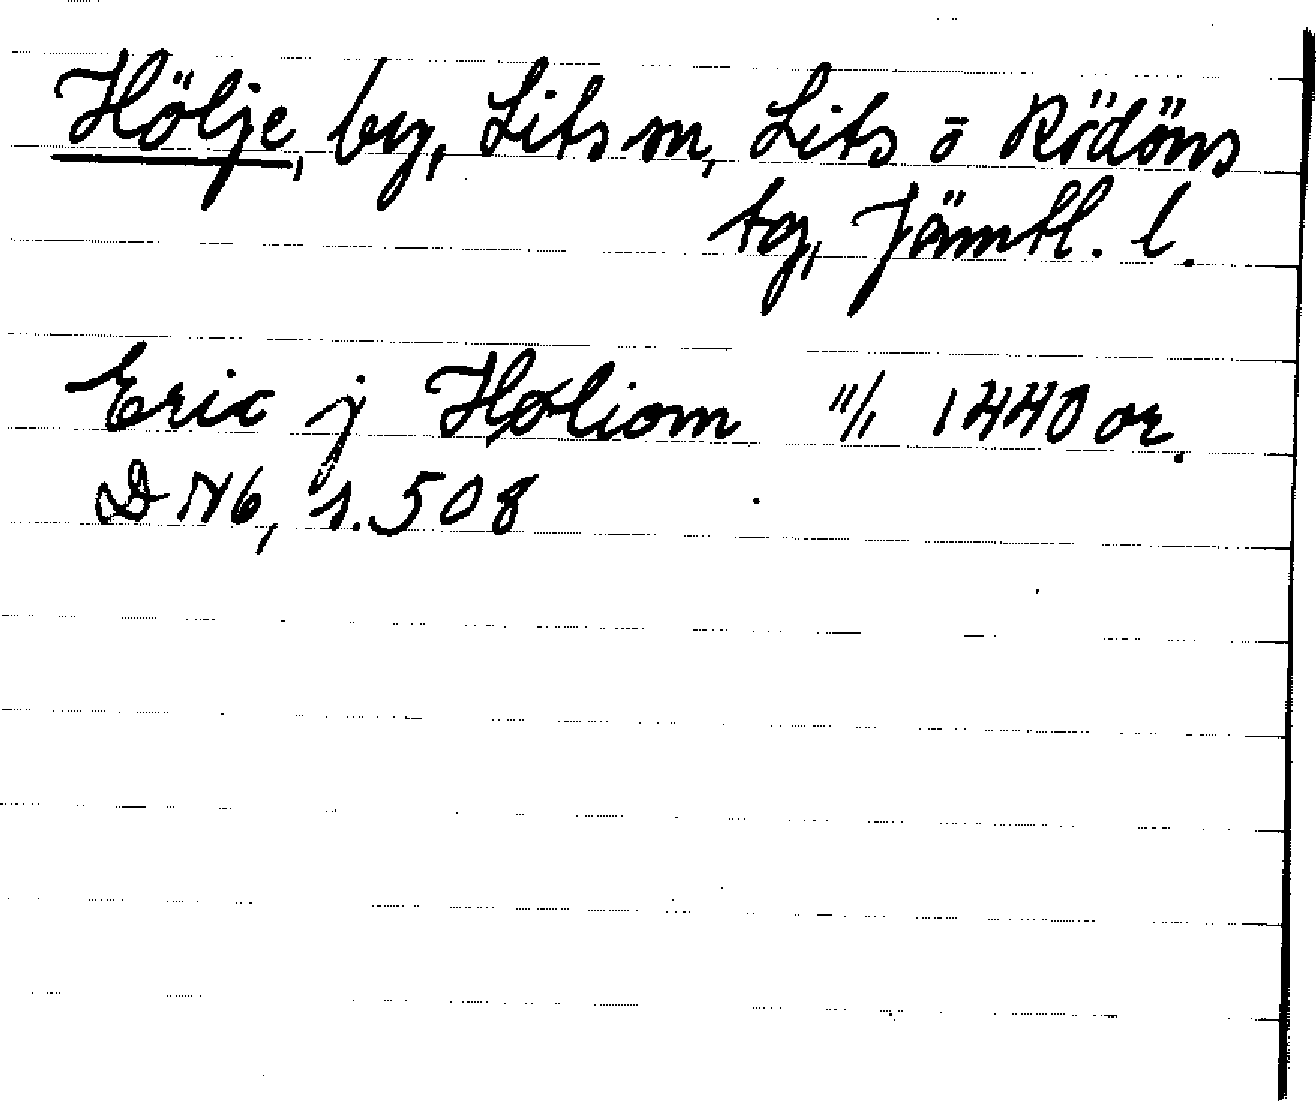 Hölje, by, Lits sn, Lits o Rödöns
tg, Jämtl. l.
Eric j Høliom 11/1 1440 or.
DN 6, s. 508